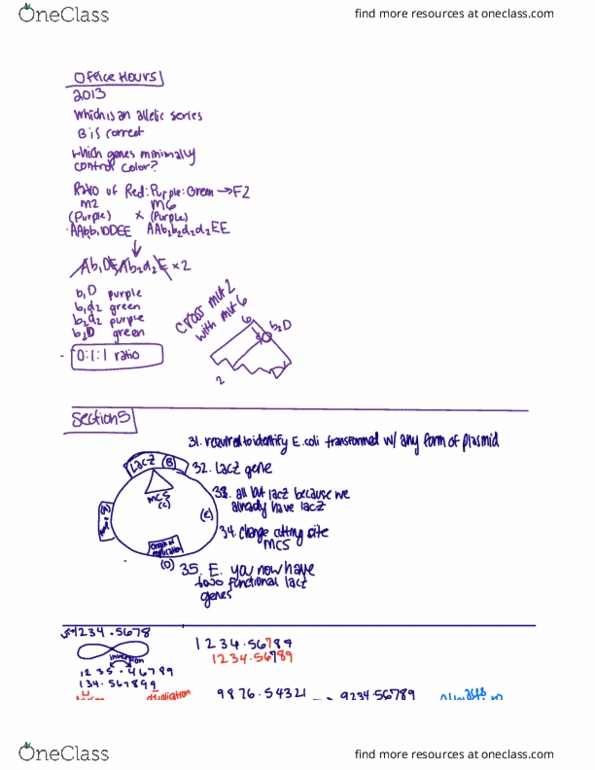 OneClass
find more resources at oneclass.com
Office Hours
2013
Which is an allelic series
B is correct
Which genes minimally
control color?
Ratio of Red:Purple:Green → F2
M2 M6
(Purple) × (Purple)
AAb₂b₂d₂d₂EE
Ab₁DE Ab₂d₂E × 2
b₁D purple
b₁d₂ green
b₂d₂ purple
b₂D green
0:1:1 ratio
cross mut 2
with mut 6
6
b₂D
2
Section 5
31. required to identify E. coli transformed w/ any form of plasmid
LacZ (B)
32. LacZ gene
MCS
(C)
33. all but lacZ because we
already have lacZ
(E)
34. change cutting site
MCS
origin of
replication
(D)
35. E. you now have
two functional lacZ
genes
1234·5678
inversion
1235·46789
134·567899
duplication
1234·56789
1234·56789
9876·54321
9234·56789
OneClass
find more resources at oneclass.com